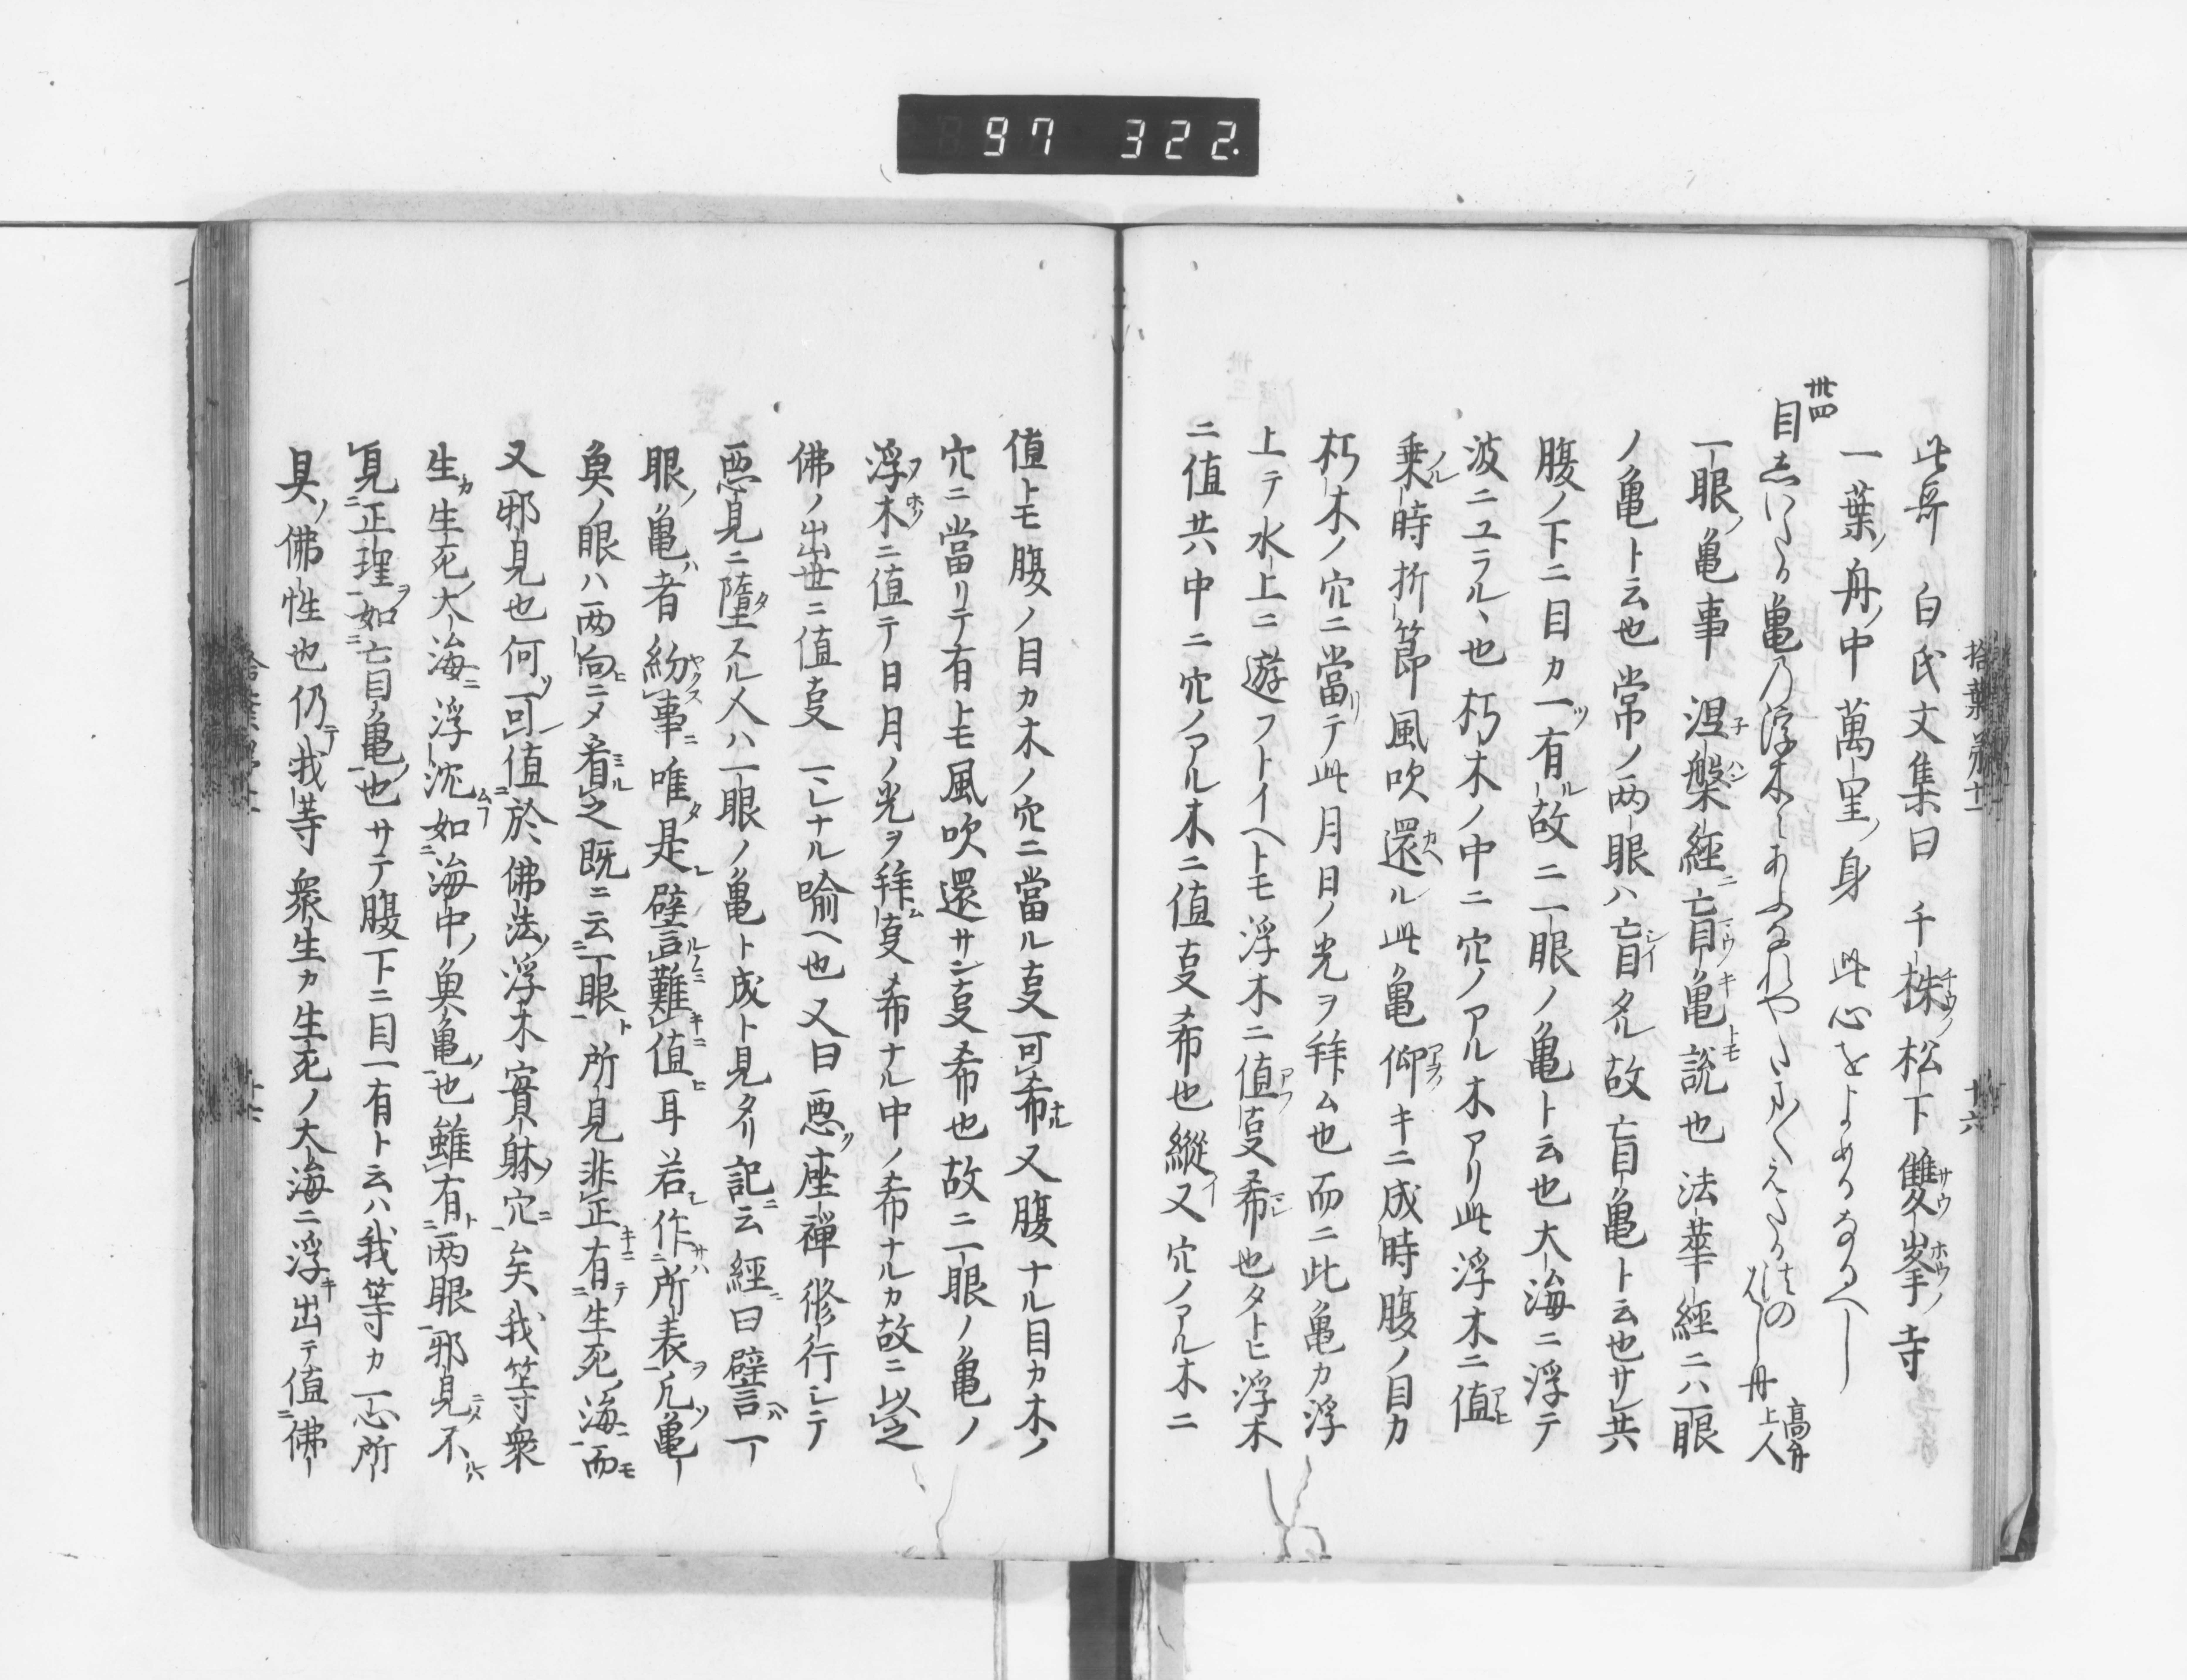 97 322.
拾葉第十一
十六
此哥 白氏文集曰 千株松下雙峯寺
一葉舟中萬里身 此心をよめるなるへし
卅四
目しゐたる亀の浮木にあふなれやたま〳〵えたる法の
はし舟 高弁上人
一眼亀事 涅槃經ニ盲亀トモ説也 法華經ニハ一眼
ノ亀ト云也常ノ両眼ハ盲タル故盲亀ト云也サレ共
腹ノ下ニ目カ一ツ有ル故ニ一眼ノ亀ト云也大海ニ浮テ
波ニユラルヽ也朽木ノ中ニ穴ノアル木アリ此浮木ニ値
乗時折節風吹還ル此亀仰キニ成時腹ノ目カ
朽木ノ穴ニ當リテ此月日ノ光ヲ拜ム也而ニ此亀カ浮
上テ水上ニ遊フトイヘトモ浮木ニ値叓希也タトヒ浮木
ニ値共中ニ穴ノアル木ニ値叓希也縱又穴ノアル木ニ
値トモ腹ノ目カ木ノ穴ニ當ル叓可希又腹ナル目カ木ノ
穴ニ當リテ有トモ風吹還サン叓希也故ニ一眼ノ亀ノ
浮木ニ値テ日月ノ光ヲ拜叓希ナル中ノ希ナルカ故ニ以之
佛ノ出世ニ値叓 一シナル喩ヘ也又曰悪座禪修行シテ
悪見ニ墮スル人ハ一眼ノ亀ト成ト見タリ記云經曰譬一
眼亀者紛事唯是譬難値耳若作所表凡亀
魚ノ眼ハ両向ニメ看之既ニ云一眼所見非正有生死海而
又邪見也何可値於佛法浮木實躰穴矣我等衆
生生死大海浮沈如海中魚亀也雖有両眼邪見不
見正理如盲亀也サテ腹下ニ目一有ト云ハ我等カ一心所
具佛性也仍我等衆生カ生死ノ大海ニ浮出テ値佛